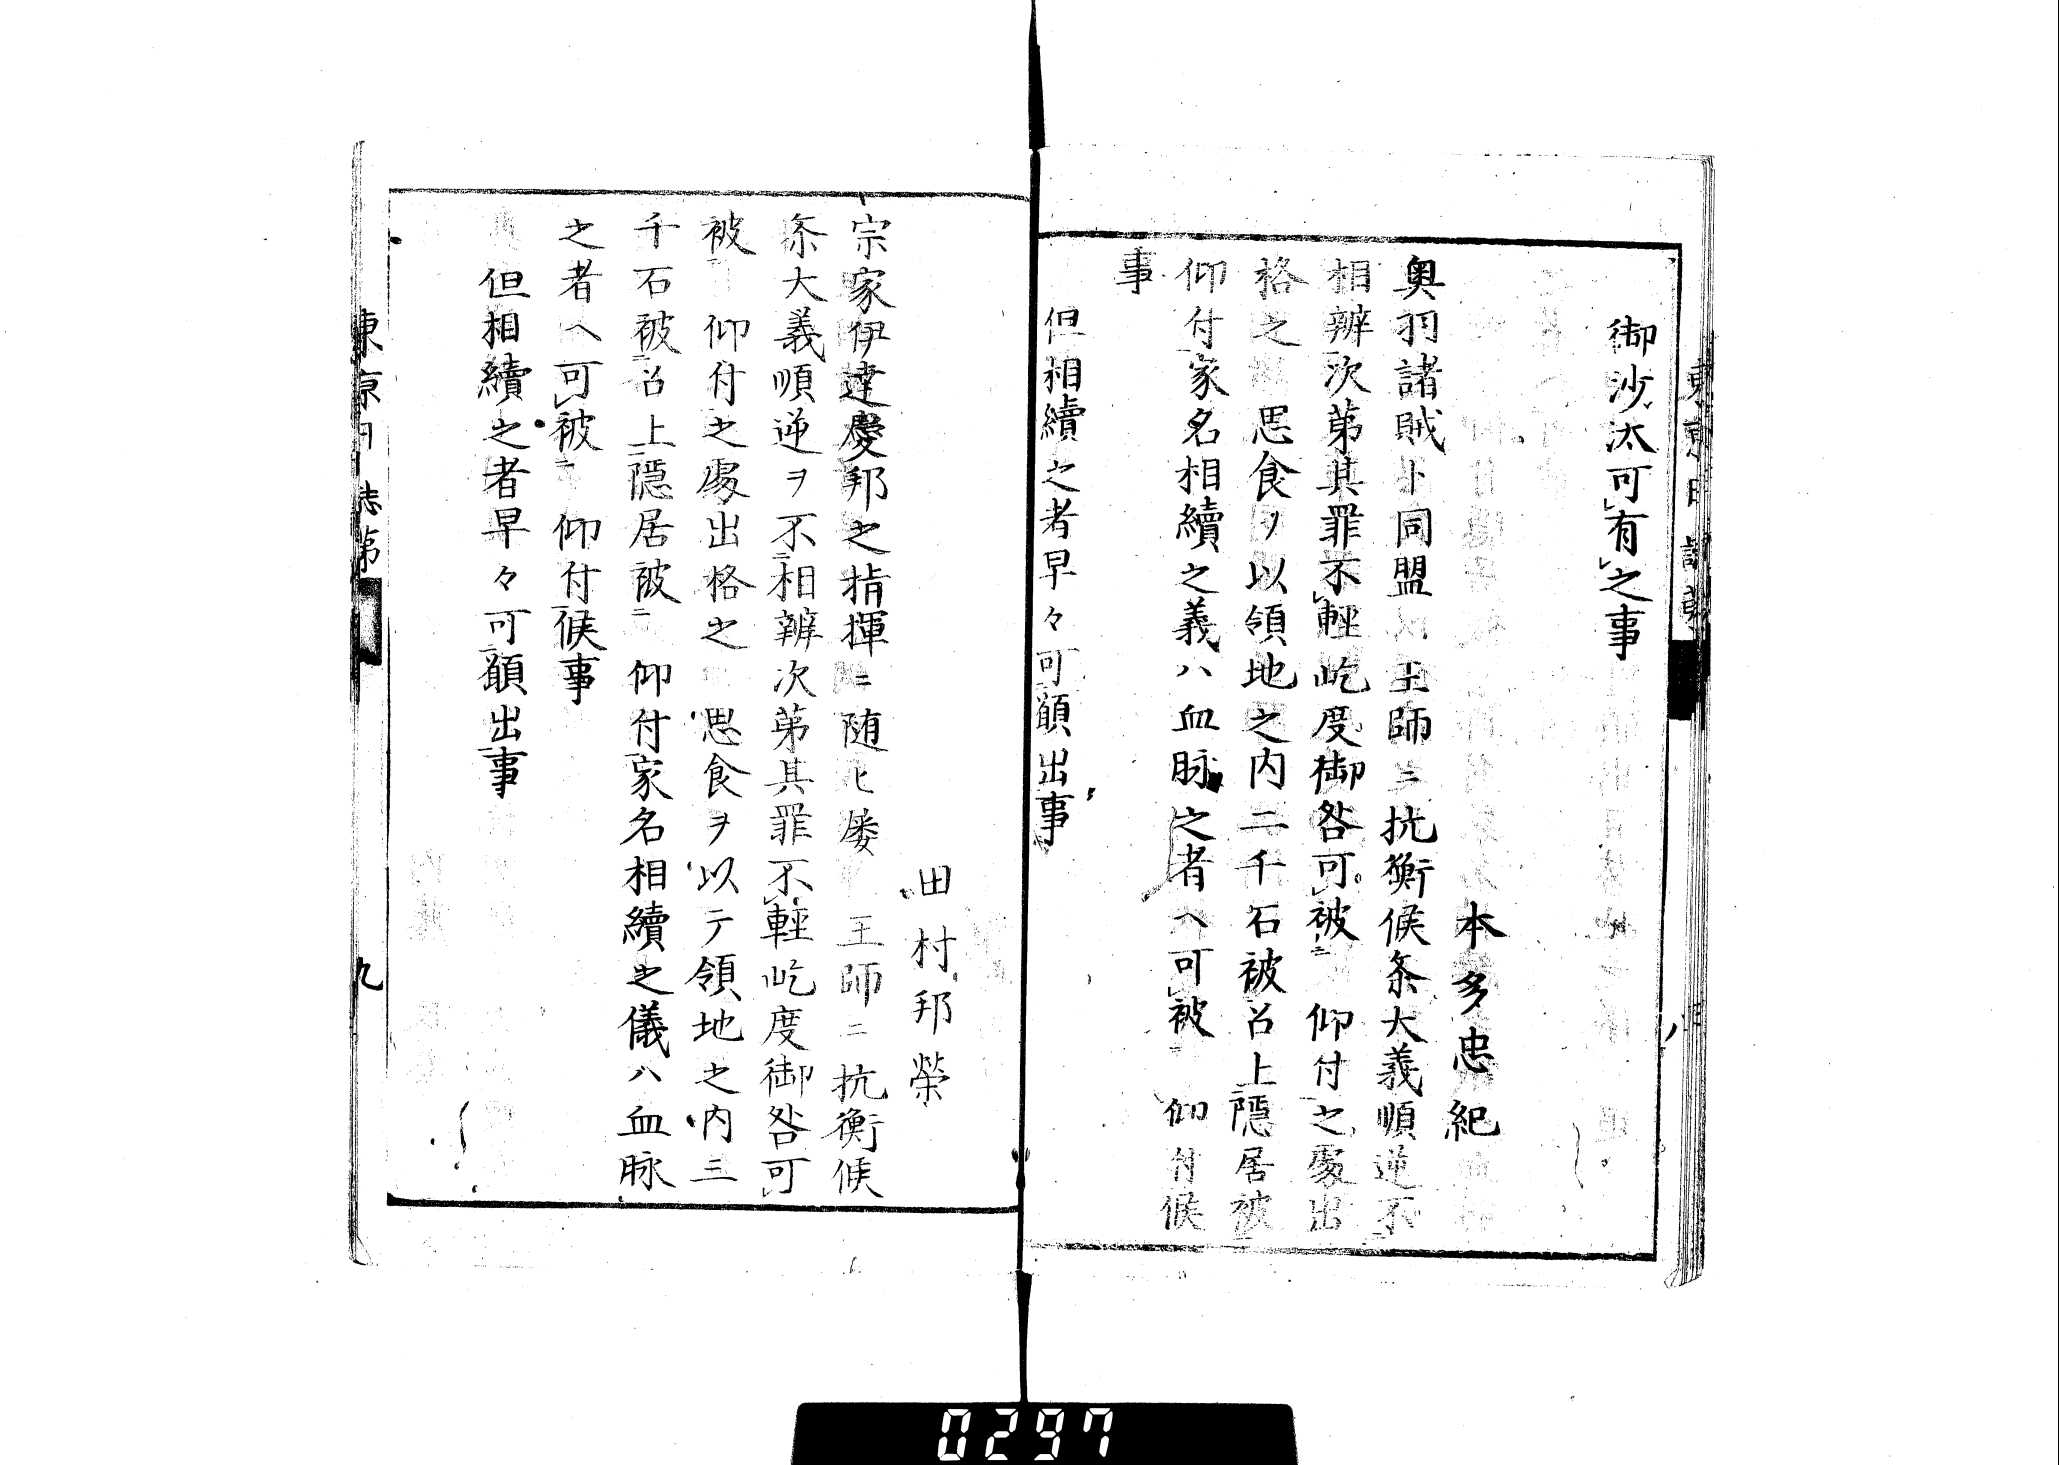 御沙汰可有之事
本多忠紀
奥羽諸賊ト同盟以王師ニ抗衡候条大義順逆不
相辨次第其罪不輕屹度御咎可被仰付之處出
格之思食ヲ以領地之内二千石被召上隠居被
仰付家名相續之義ハ血脉之者ヘ可被仰付候
事
但相續之者早々可願出事
田村邦榮
宗家伊達慶邦之指揮ニ随ヒ屡王師ニ抗衡候
条大義順逆ヲ不相辨次第其罪不輕屹度御咎可
被仰付之處出格之思食ヲ以テ領地之内三
千石被召上隠居被仰付家名相續之儀ハ血脉
之者ヘ可被仰付候事
但相續之者早々可願出事
東京日誌第
九
0297